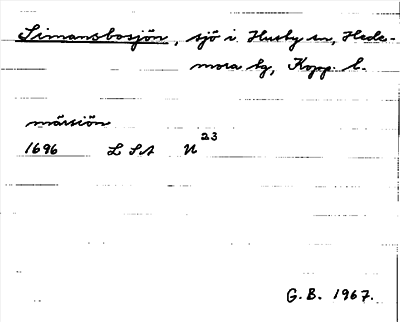 Simansbosjön, sjö i Husby sn, Hede-
mora hg, Kopp. l.
märsiön
1696 L SA U 23
G. B. 1967.